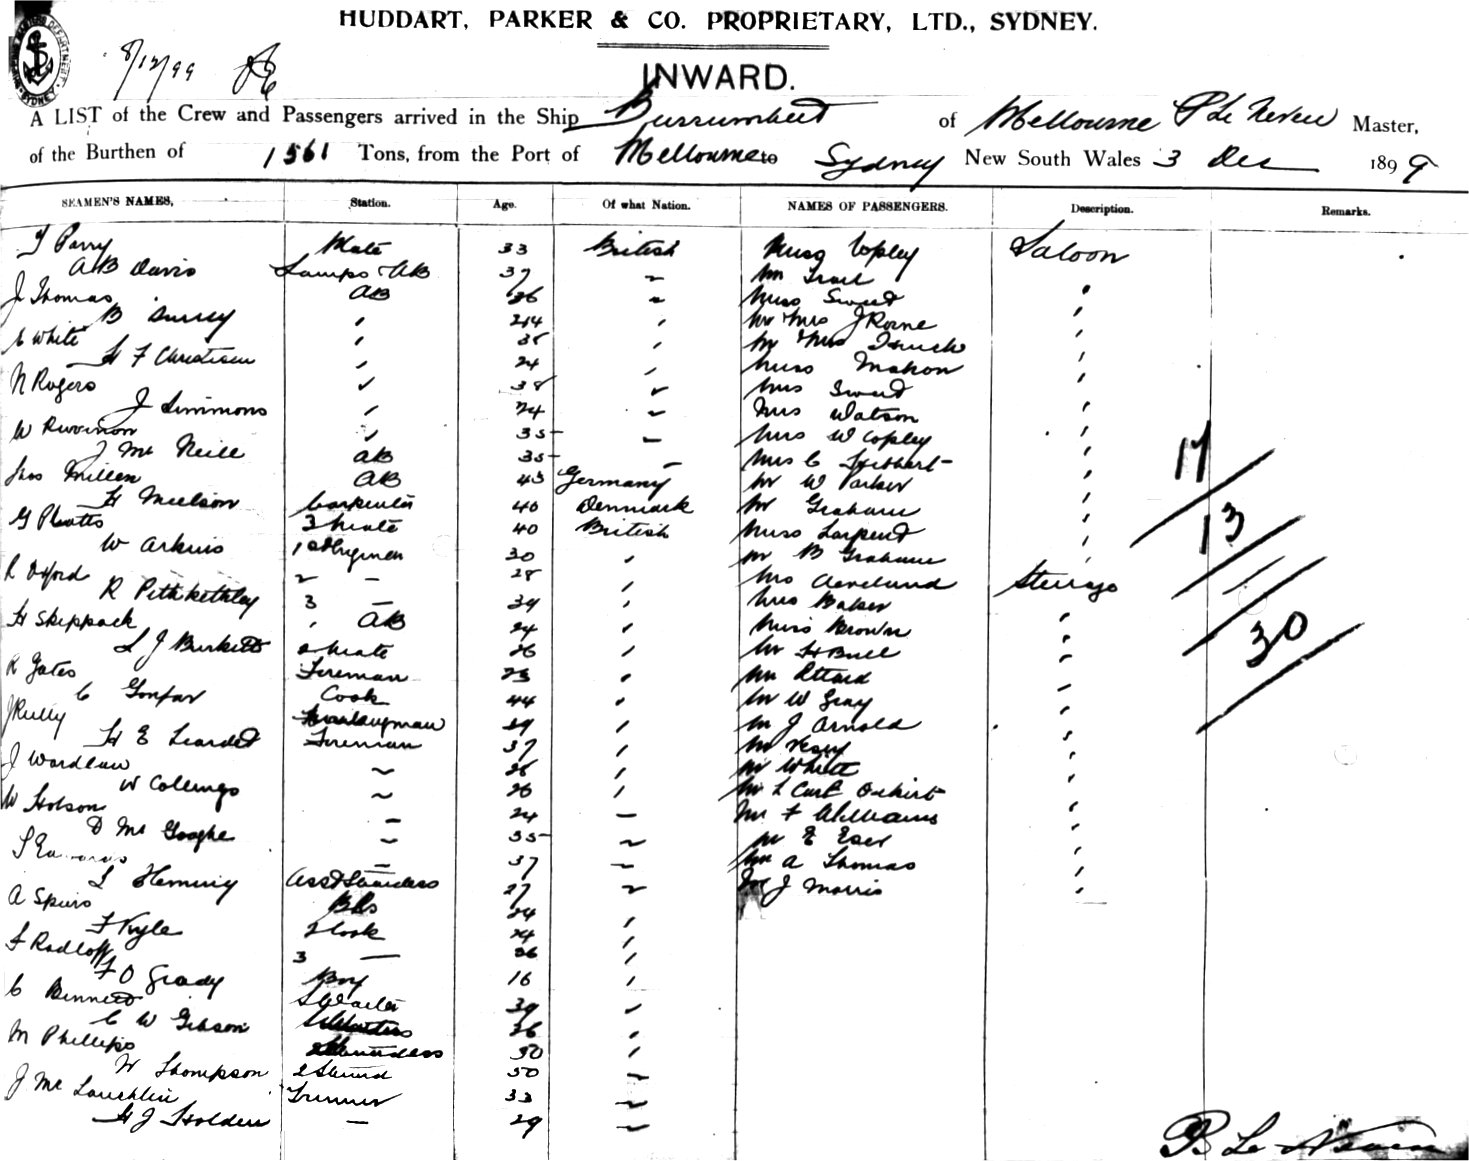 HUDDART, PARKER & CO. PROPRIETARY, LTD., SYDNEY.
8/12/99
INWARD.
A LIST of the Crew and Passengers arrived in the Ship Burrumbeet of Melbourne P Le Neveu Master,
of the Burthen of 1561 Tons, from the Port of Melbourne to Sydney New South Wales 3 Dec 1899
SEAMEN'S NAMES, Station. Age. Of what Nation. NAMES OF PASSENGERS. Description. Remarks.
T Parry Mate 33 British Miss Copley Saloon
A B Davis Lamps & AB 37 " Mr Trail "
J Thomas AB 36 " Miss Sweet "
B Surrey " 24 " Mr & Mrs J Rorne "
E White " 38 " Mr & Mrs "
H F Christisen " 24 " Miss Mahon "
N Rogers " 38 " Mrs Sweet "
J Simmons " 24 " Mrs Watson "
W " 35 " Mrs W Copley "
J Mc Neill AB 35 " Mrs C "
Jas Millen AB 43 Germany Mr W Parker "
H Neelson Carpenter 40 Denmark Mr Graham "
G Pleatts 3 Mate 40 British Miss Larpent "
W Arkins 1st 30 " Mr B Graham "
R Oxford 2 — 28 " Mrs Cleveland Steerage
R Pethkethley 3 — 39 " Mrs Baker "
H Skippack " AB 24 " Miss Brown "
L J Burkett 2 Mate 26 " Mr H Bull "
R Yates Fireman 23 " Mr Attard "
C Cook 44 " Mr W Gray "
J Reilly 29 " Mr J Arnold "
H E Leardet Fireman 37 " Mr Vesey "
J Wardlaw " 26 " Mr White "
W Collings " 26 " Mr L Carl "
W Hobson " 24 " Mr F Williams "
D Mc " 35 " Mr E Eser "
S Edwards " 37 " Mr A Thomas "
L Fleming Asst Stewardess 27 " Mr J Morris "
A Spiers 24 "
F Kyle 2 Cook 24 "
F Radloff 3 — 26 "
F O Grady Boy 16 "
C Bennett S Waiter 39 "
C W Gibson 26 "
M Phillips Stewardess 50 "
W Thompson 2 Steward 50 "
J Mc Lauchlin Trimmer 33 "
H J Holden — 29 "
17
13
30
P Le Neveu